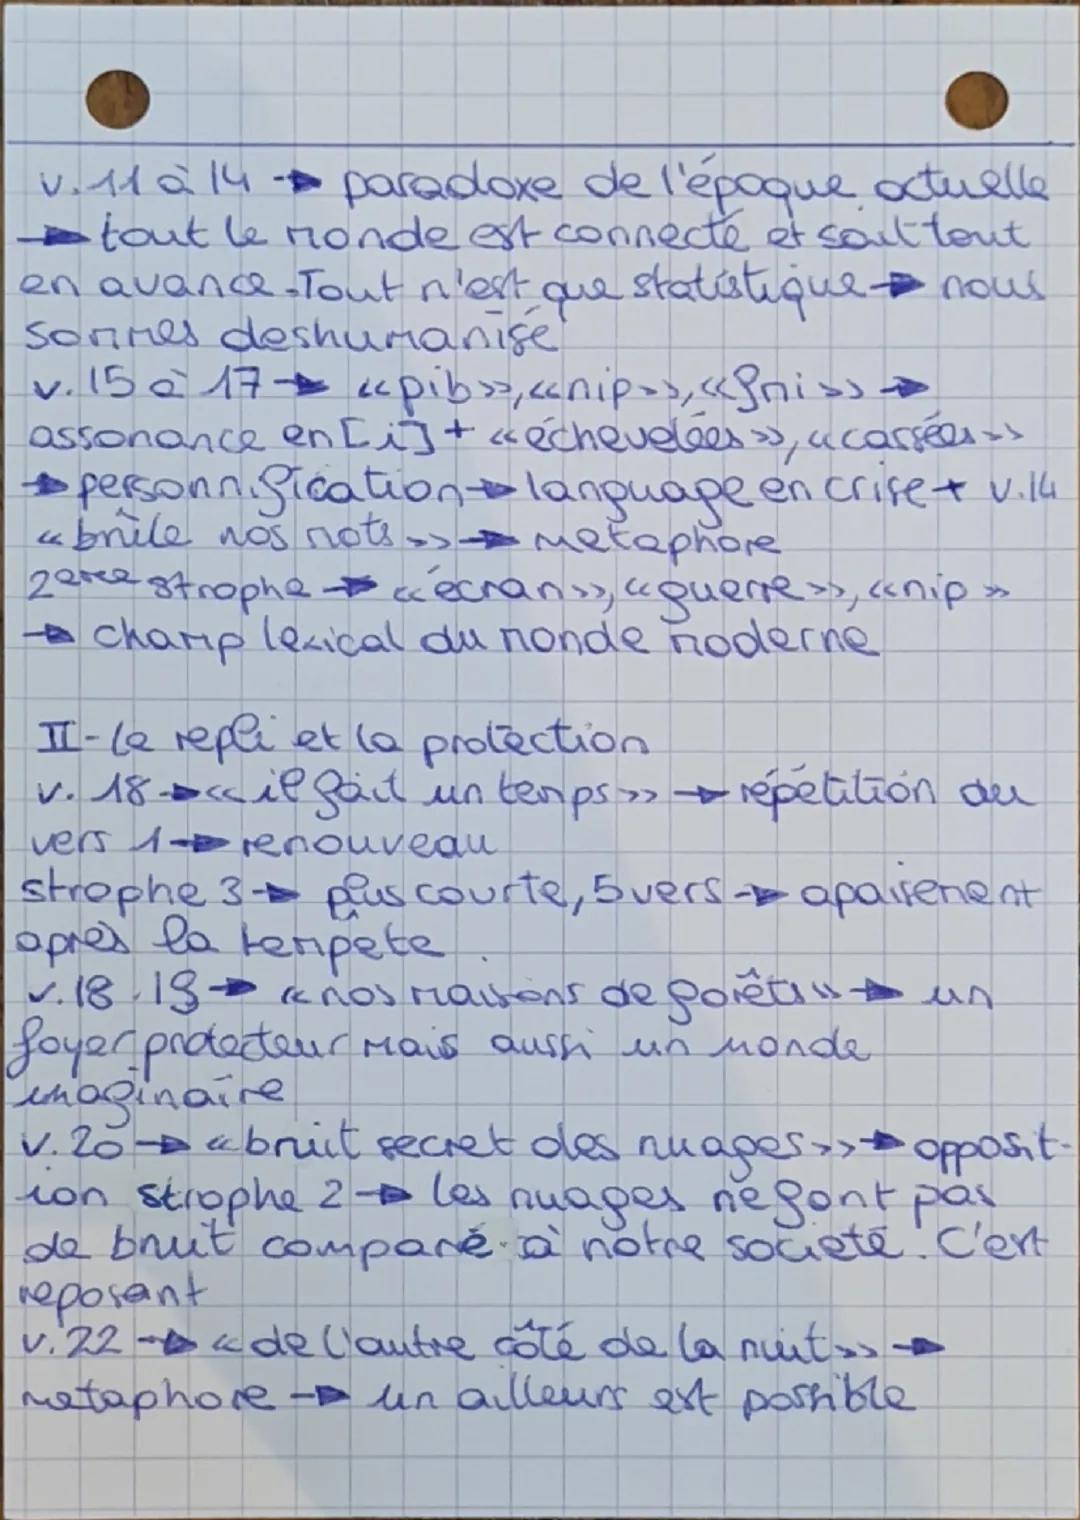 v. 11 à 14 → paradoxe de l'époque actuelle
→ tout le monde est connecté et sait tout
en avance. Tout n'est que statistique → nous
sommes deshumanisé
v. 15 à 17 → «pib», «nip», «fmi» →
assonance en [i] + «échevelées», «cassées»
→ personnification → language en crise + v.14
«brûle nos mots» → métaphore
2ème strophe → «écran», «guerre», «nip»
→ champ lexical du monde moderne
II - Le repli et la protection
v. 18 → «il fait un temps» → répétition du
vers 1 → renouveau
strophe 3 → plus courte, 5 vers → apaisement
après la tempête.
v. 18.19 → «nos maisons de poêts» → un
foyer protecteur mais aussi un monde
imaginaire
v. 20 → «bruit secret des nuages» → opposit-
ion strophe 2 → les nuages ne font pas
de bruit comparé à notre société. C'est
reposant
v. 22 → «de l'autre côté de la nuit» →
métaphore → un ailleurs est possible